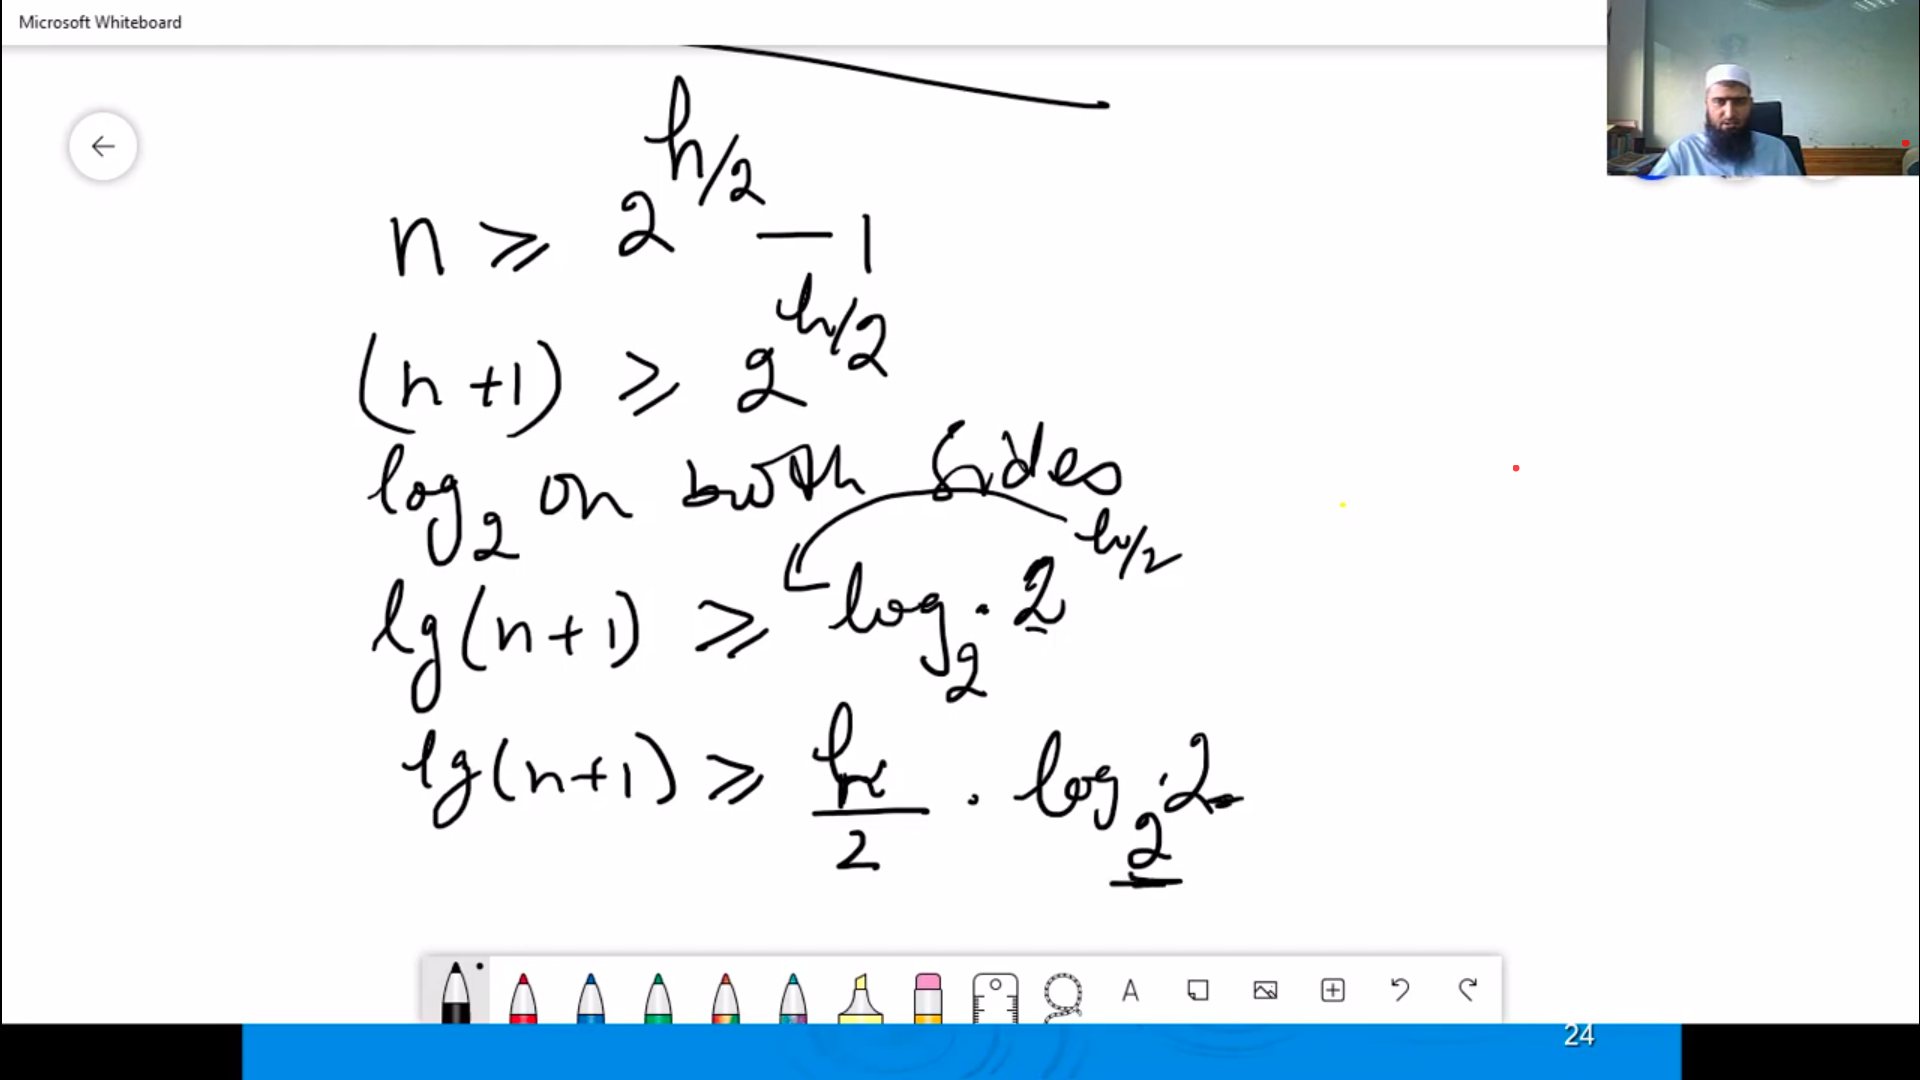 Microsoft Whiteboard
n ≥ 2^{h/2} - 1
(n+1) ≥ 2^{h/2}
log_2 on both sides
lg(n+1) ≥ log_2 . 2^{h/2}
lg(n+1) ≥ h/2 . log_2 . 2
A
24